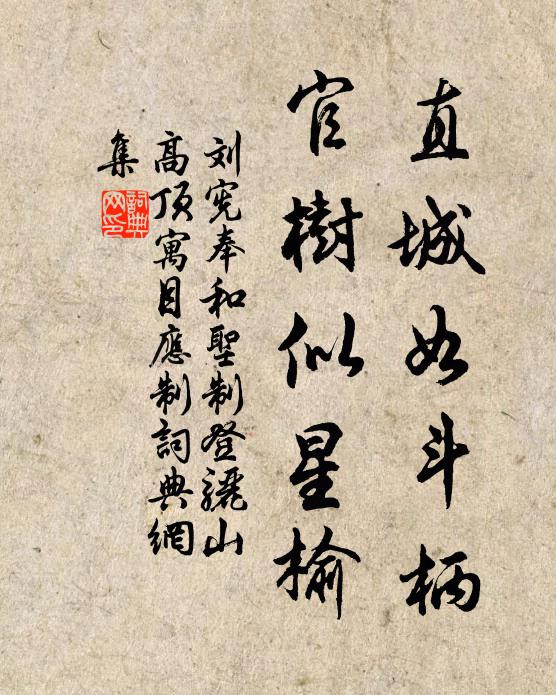 直城如斗柄
官樹似星榆
刘宪奉和聖制登驪山
高顶寓目應制詞典網
集
詞典
网印